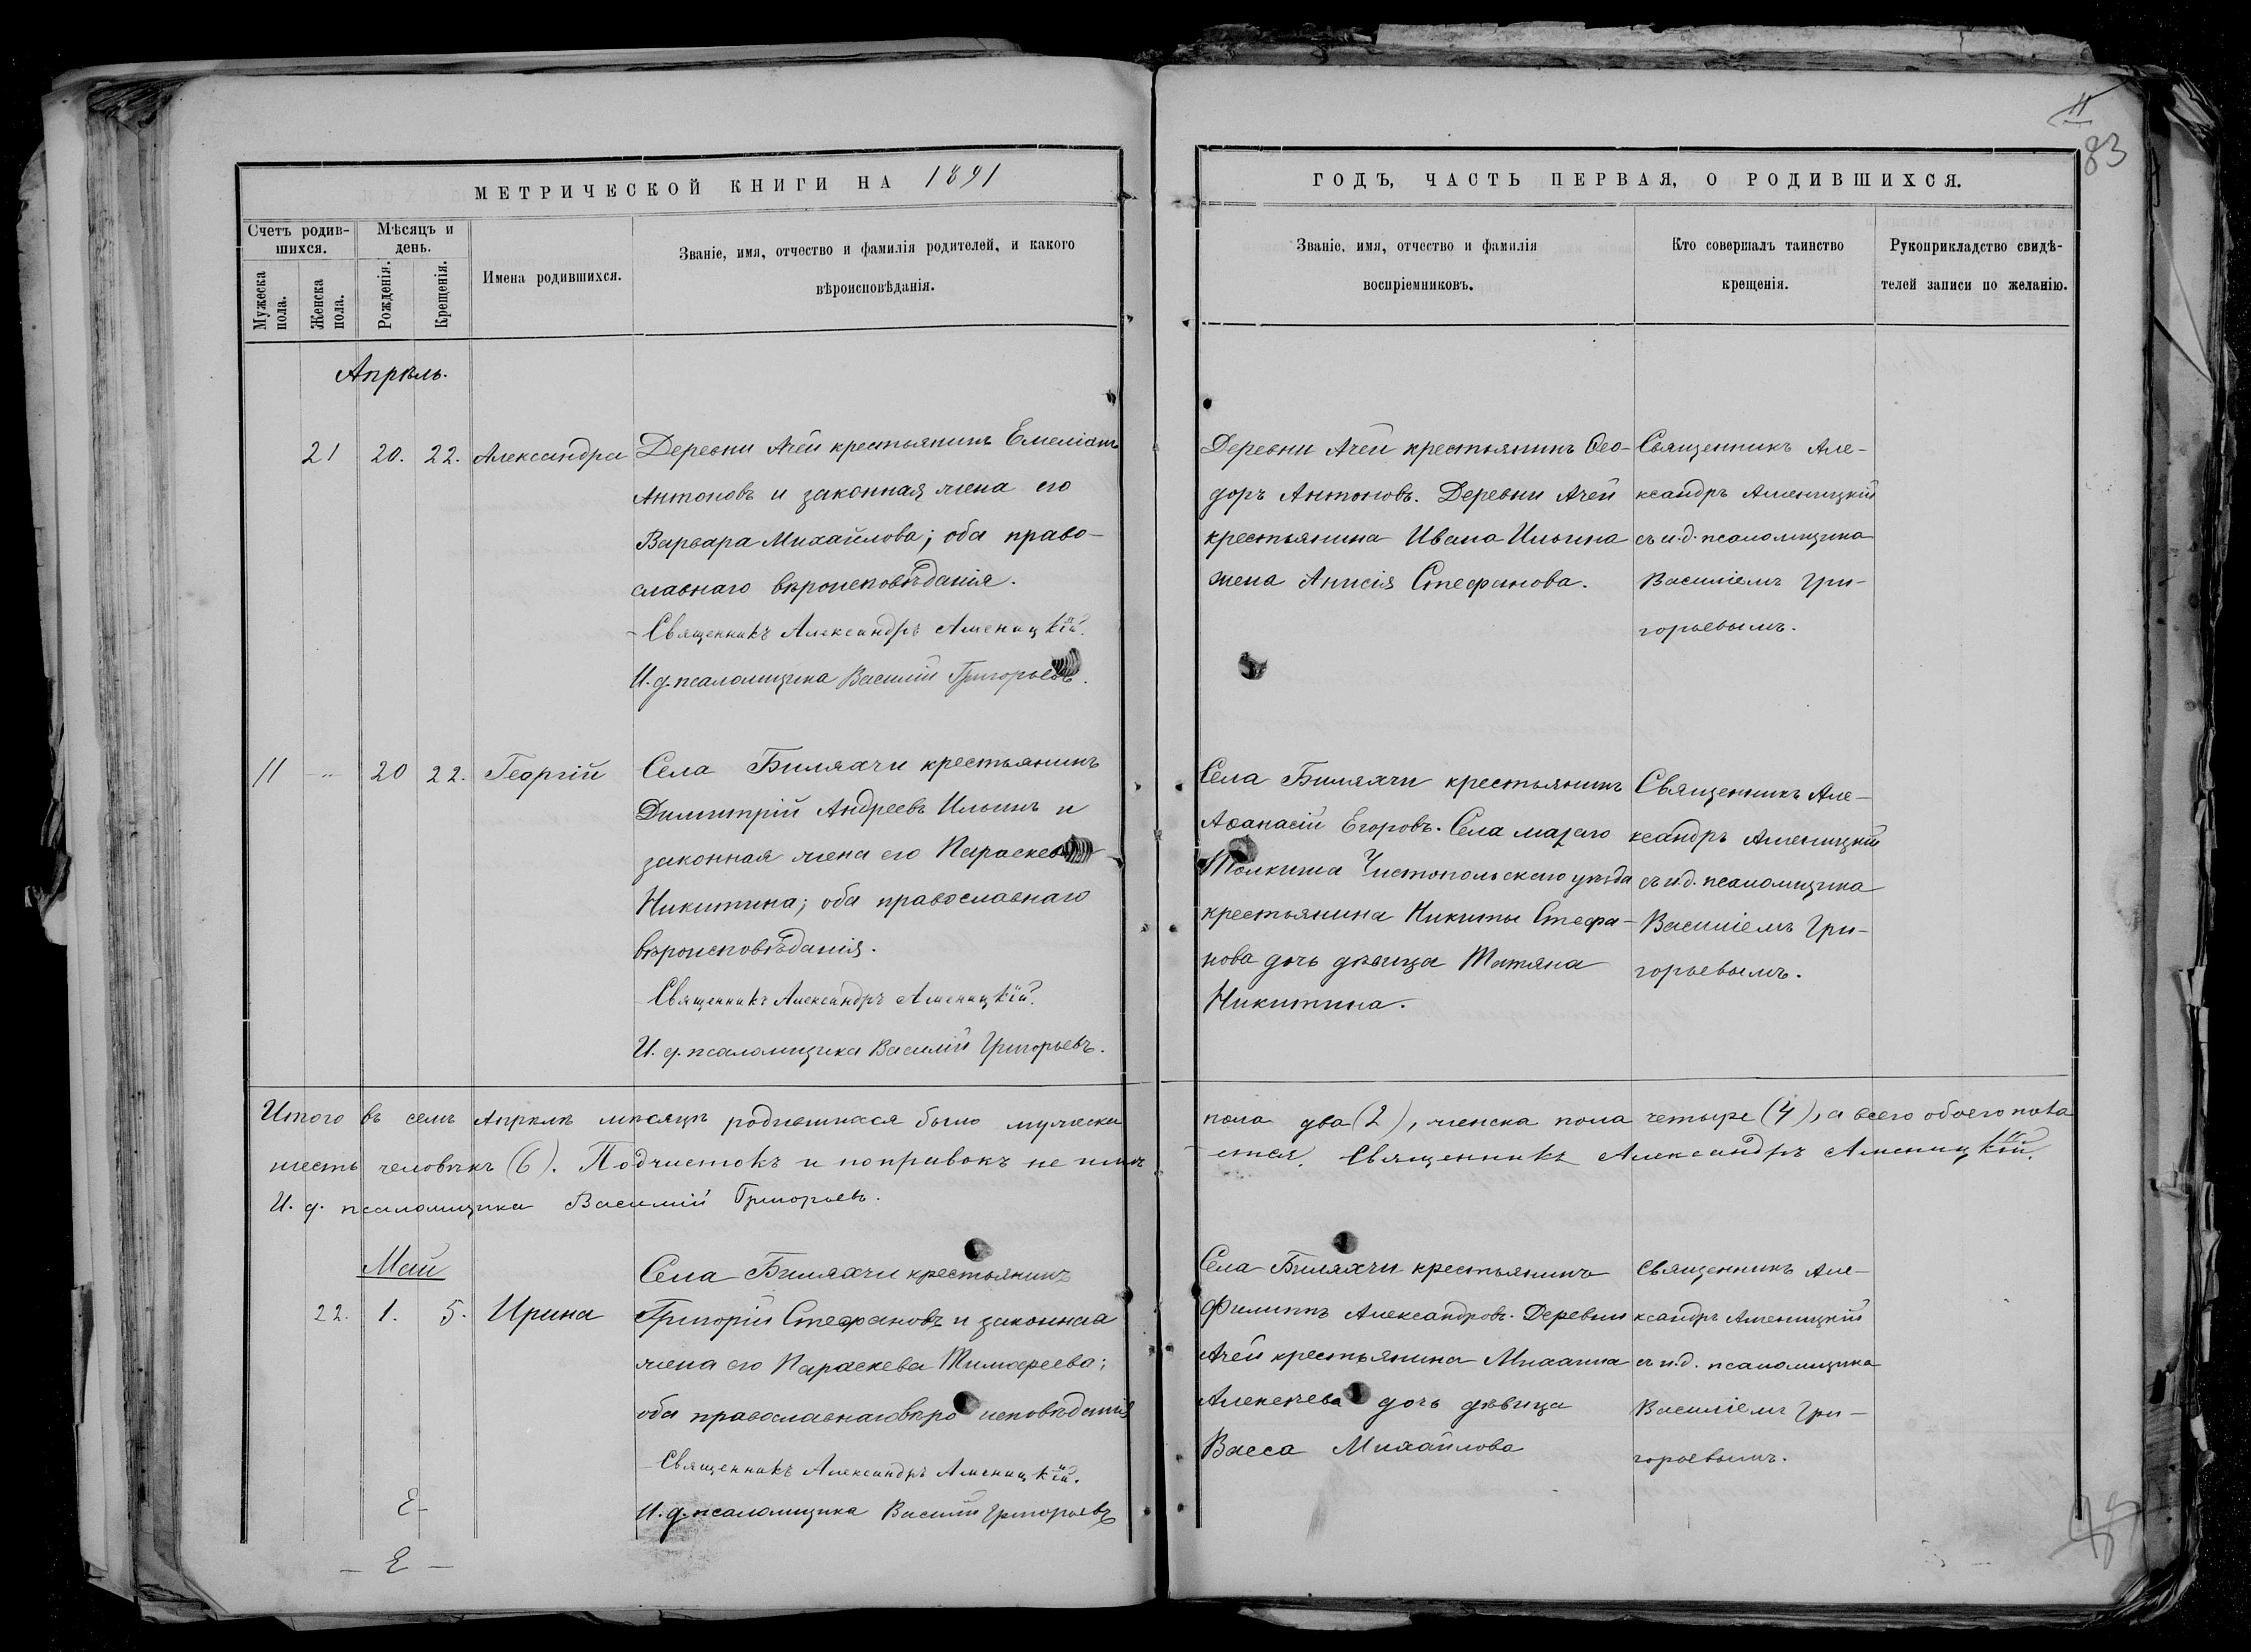 МЕТРИЧЕСКОЙ КНИГИ НА 1891
Счетъ родив-
шихся.
Мѣсяцъ и
день.
Мужеска
пола.
Женска
пола.
Рожденія.
Крещенія.
Имена родившихся.
Званіе, имя, отчество и фамилія родителей, и какого
вѣроисповѣданія.
Апрѣль.
21 20. 22. Александра
Деревни Ачей крестьянинъ Емеліанъ
Антоновъ и законная жена его
Варвара Михайлова; оба право-
славнаго вѣроисповѣданія.
Священникъ Александръ Аменицкій.
И. д. псаломщика Василій Григорьевъ.
11 20 22. Георгій
Села Биляхчи крестьянинъ
Димитрій Андреевъ Ильинъ и
законная жена его Параскева
Никитина; оба православнаго
вѣроисповѣданія.
Священникъ Александръ Аменицкій.
И. д. псаломщика Василій Григорьевъ.
Итого въ семъ Апрѣлѣ мѣсяцѣ родившихся было мужеска
шесть человѣкъ (6). Подчистокъ и поправокъ не имѣ
И. д. псаломщика Василій Григорьевъ.
Май
22. 1. 5. Ирина
Села Биляхчи крестьянинъ
Григорій Стефановъ и законная
жена его Параскева Тимофеева;
оба православнаго вѣроисповѣданія
Священникъ Александръ Аменицкій.
И. д. псаломщика Василій Григорьевъ
11
83
ГОДЪ, ЧАСТЬ ПЕРВАЯ, О РОДИВШИХСЯ.
Званіе, имя, отчество и фамилія
воспріемниковъ.
Кто совершалъ таинство
крещенія.
Рукоприкладство свидѣ-
телей записи по желанію.
Деревни Ачей крестьянинъ Ѳео-
доръ Антоновъ. Деревни Ачей
крестьянина Ивана Ильина
жена Анисія Стефанова.
Священникъ Але-
ксандръ Аменицкій
съ и. д. псаломщика
Василіемъ Гри-
горьевымъ.
Села Биляхчи крестьянинъ
Аѳанасій Егоровъ. Села малаго
Толкиша Чистопольскаго уѣзда
крестьянина Никиты Стефа-
нова дочь дѣвица Татяна
Никитина.
Священникъ Але-
ксандръ Аменицкій
съ и. д. псаломщика
Василіемъ Гри-
горьевымъ.
пола два (2), женска пола четыре (4), а всего обоего пола
ется. Священникъ Александръ Аменицкій.
Села Биляхчи крестьянинъ
Филиппъ Александровъ. Деревни
Ачей крестьянина Михаила
Алексѣева дочь дѣвица
Васса Михайлова
Священникъ Але-
ксандръ Аменицкій
съ и. д. псаломщика
Василіемъ Гри-
горьевымъ.